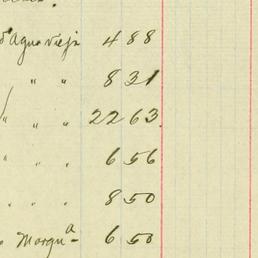 d'Agua Vieja 4 88
" " 8 31
" " 22 63
" " 6 56
" " 8 50
Morgu a 6 50